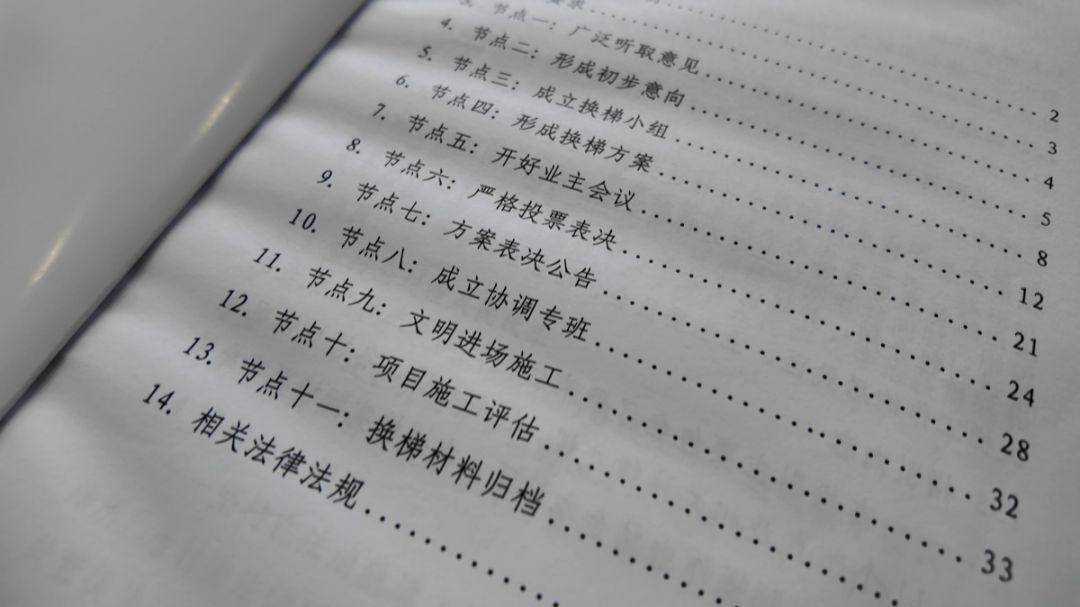 2
求 3
3. 节点一：广泛听取意见 4
4. 节点二：形成初步意向 5
5. 节点三：成立换梯小组 8
6. 节点四：形成换梯方案 12
7. 节点五：开好业主会议 21
8. 节点六：严格投票表决 24
9. 节点七：方案表决公告 28
10. 节点八：成立协调专班 32
11. 节点九：文明进场施工 33
12. 节点十：项目施工评估
13. 节点十一：换梯材料归档
14. 相关法律法规